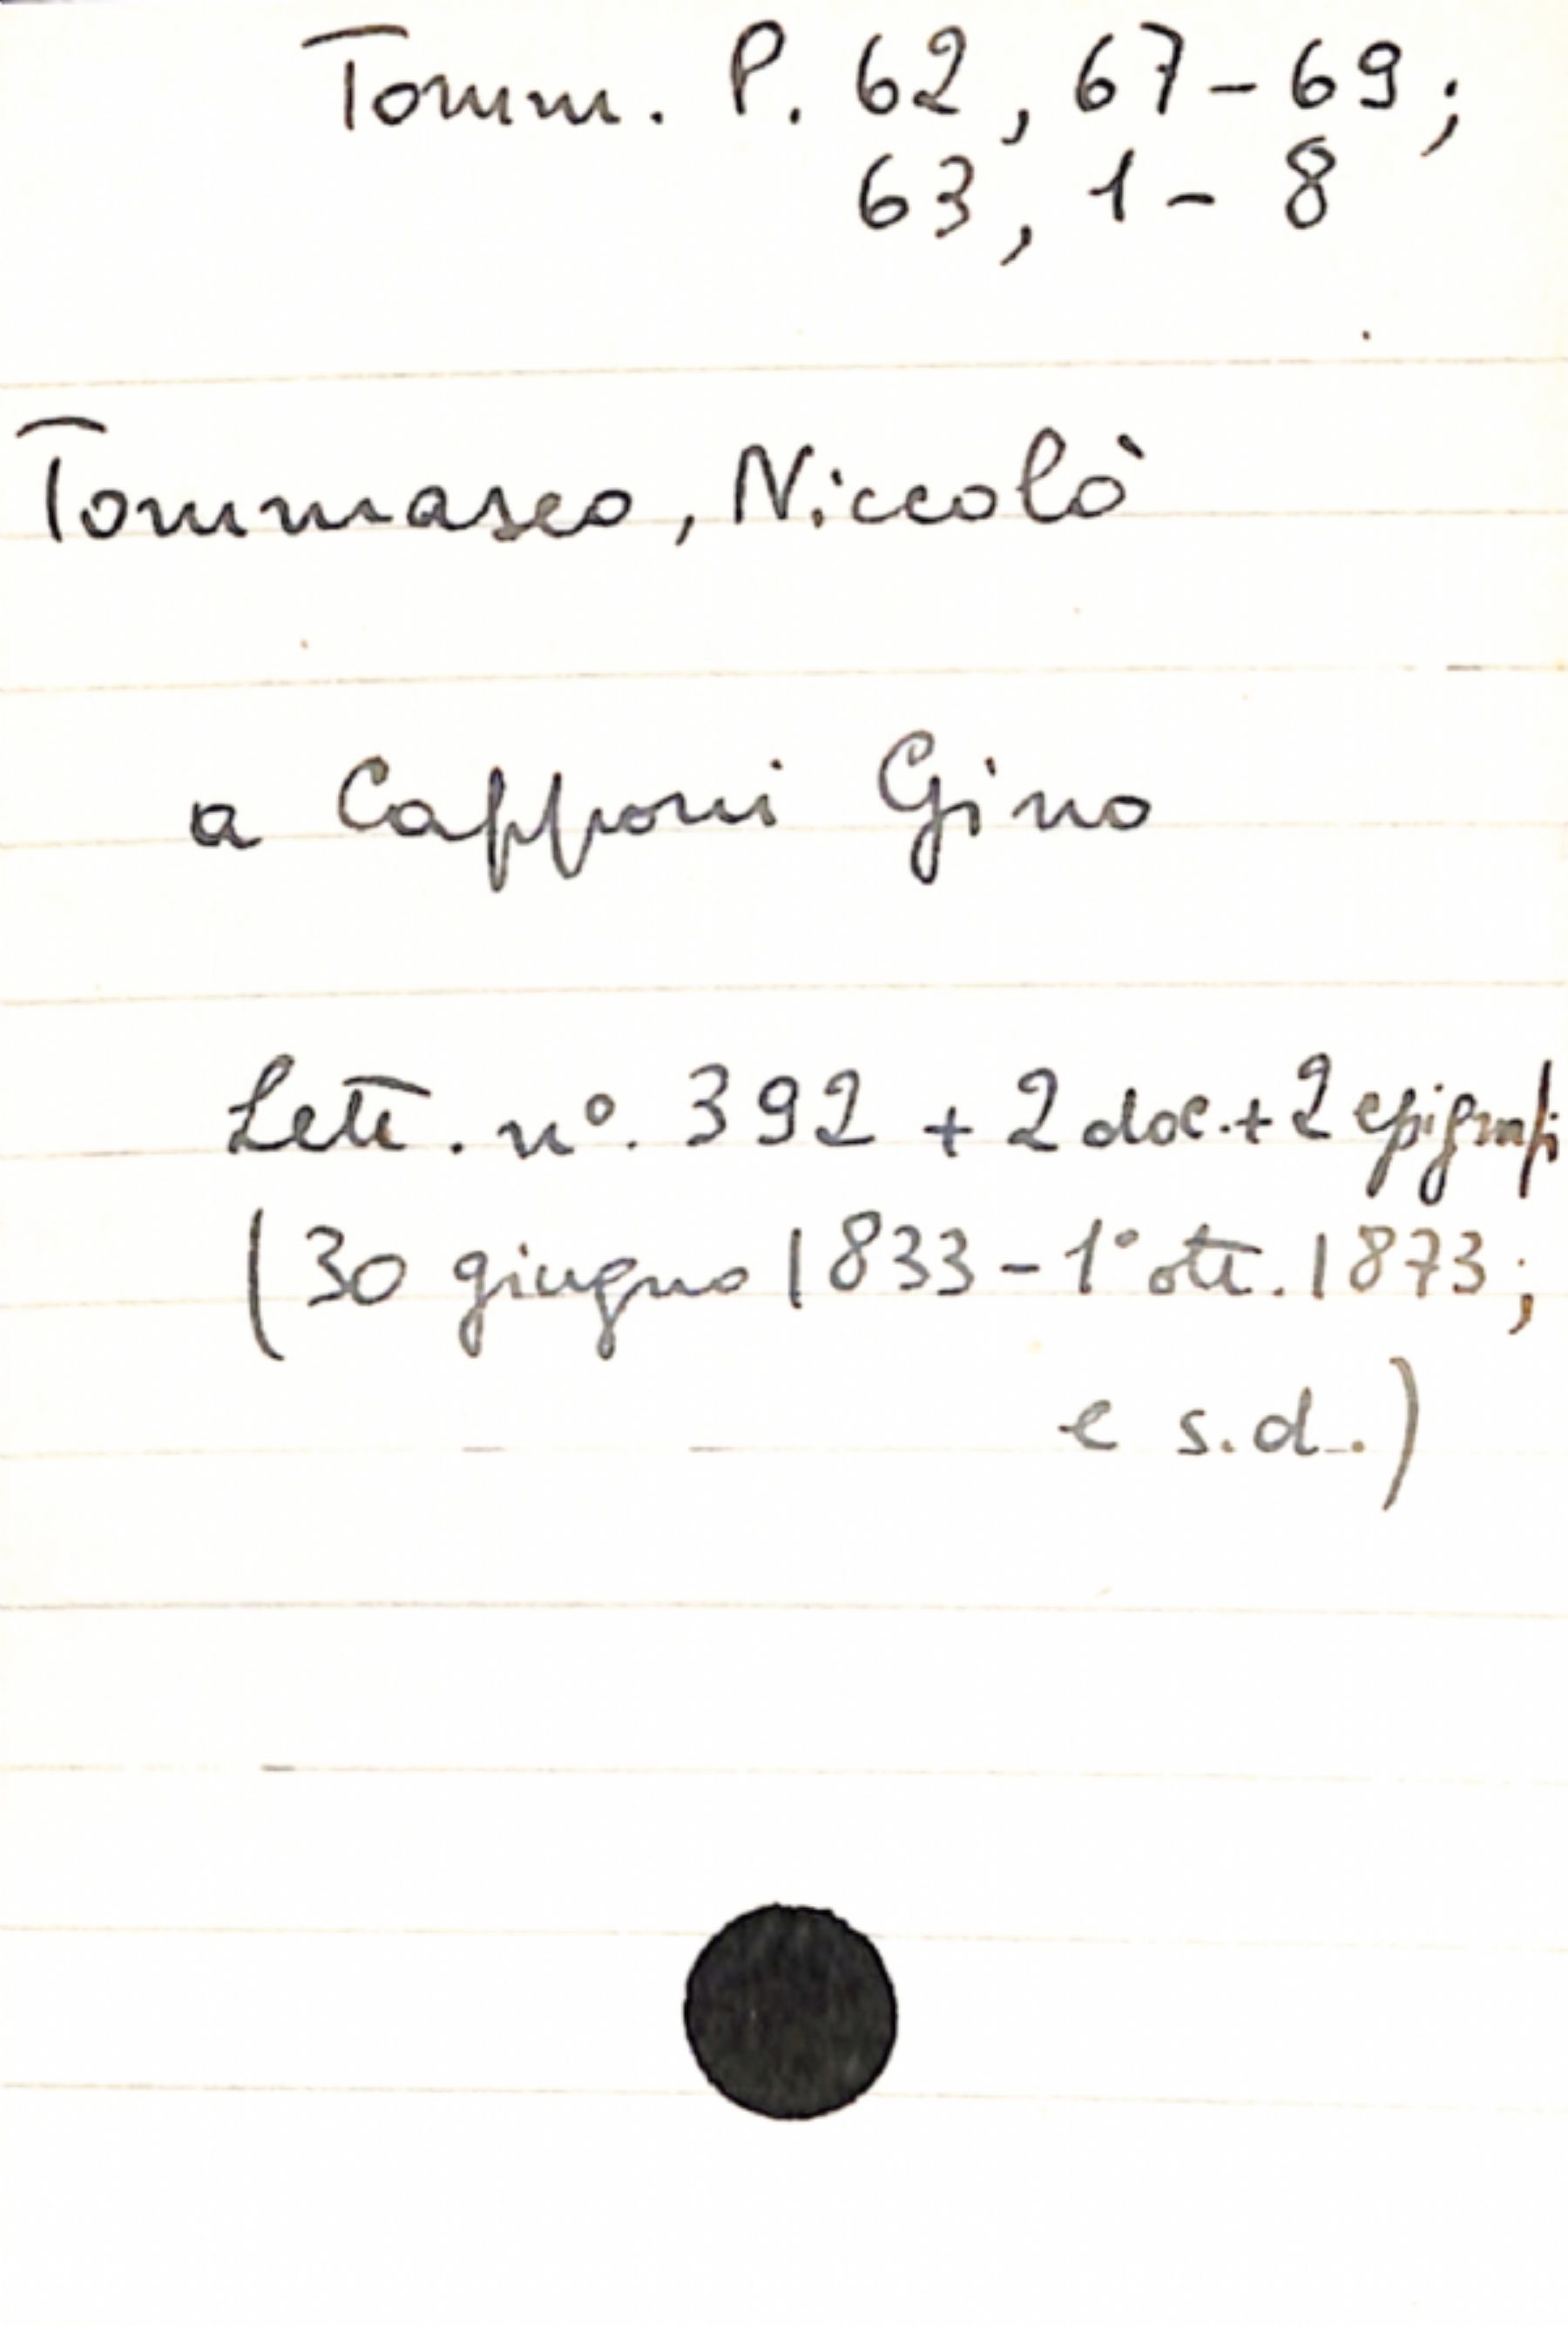 Tomm. P. 62, 67-69;
63, 1-8
Tommaseo, Niccolò
a Capponi Gino
Lett. nº. 392 + 2 doc. + 2 epigrafi
(30 giugno 1833 - 1° ott. 1873;
e s.d.)